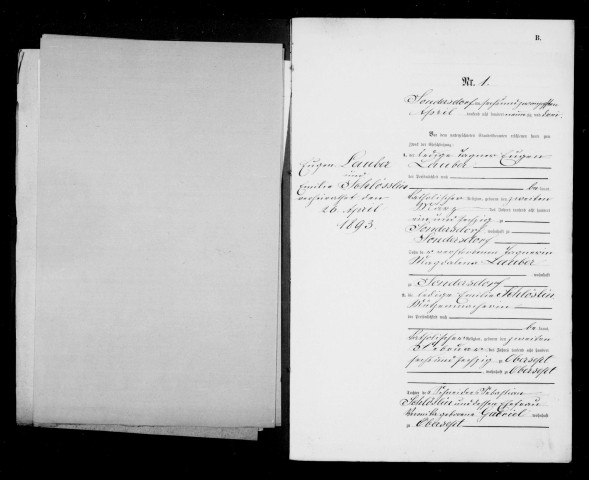 B.
Nr. 1.
Sondersdorf am sechsundzwanzigsten
April tausend acht hundert neunzig und drei.
Vor dem unterzeichneten Standesbeamten erschienen heute zum
Zweck der Eheschließung:
1. der ledige Tagner Eugen
Lauber
der Persönlichkeit nach
be kannt,
katholischer Religion, geboren den zweiten
März des Jahres tausend acht hundert
ein und sechzig zu
Sondersdorf, wohnhaft zu
Sondersdorf
Sohn der verstorbenen Tagnerin
Magdalena Lauber
wohnhaft
zu Sondersdorf
2. die ledige Emilie Schlöslin
der Persönlichkeit nach
be kannt,
katholischer Religion, geboren den zweiten
Februar des Jahres tausend acht hundert
sechs und sechzig zu Obersept
, wohnhaft zu Obersept
Tochter des Schneiders Sebastian
Schlöslin und dessen Ehefrau
Veronika geborene Gabriel wohnhaft
zu Obersept
Eugen Lauber
und
Emilie Schlöslin
verheirathet den
26. April
1893.